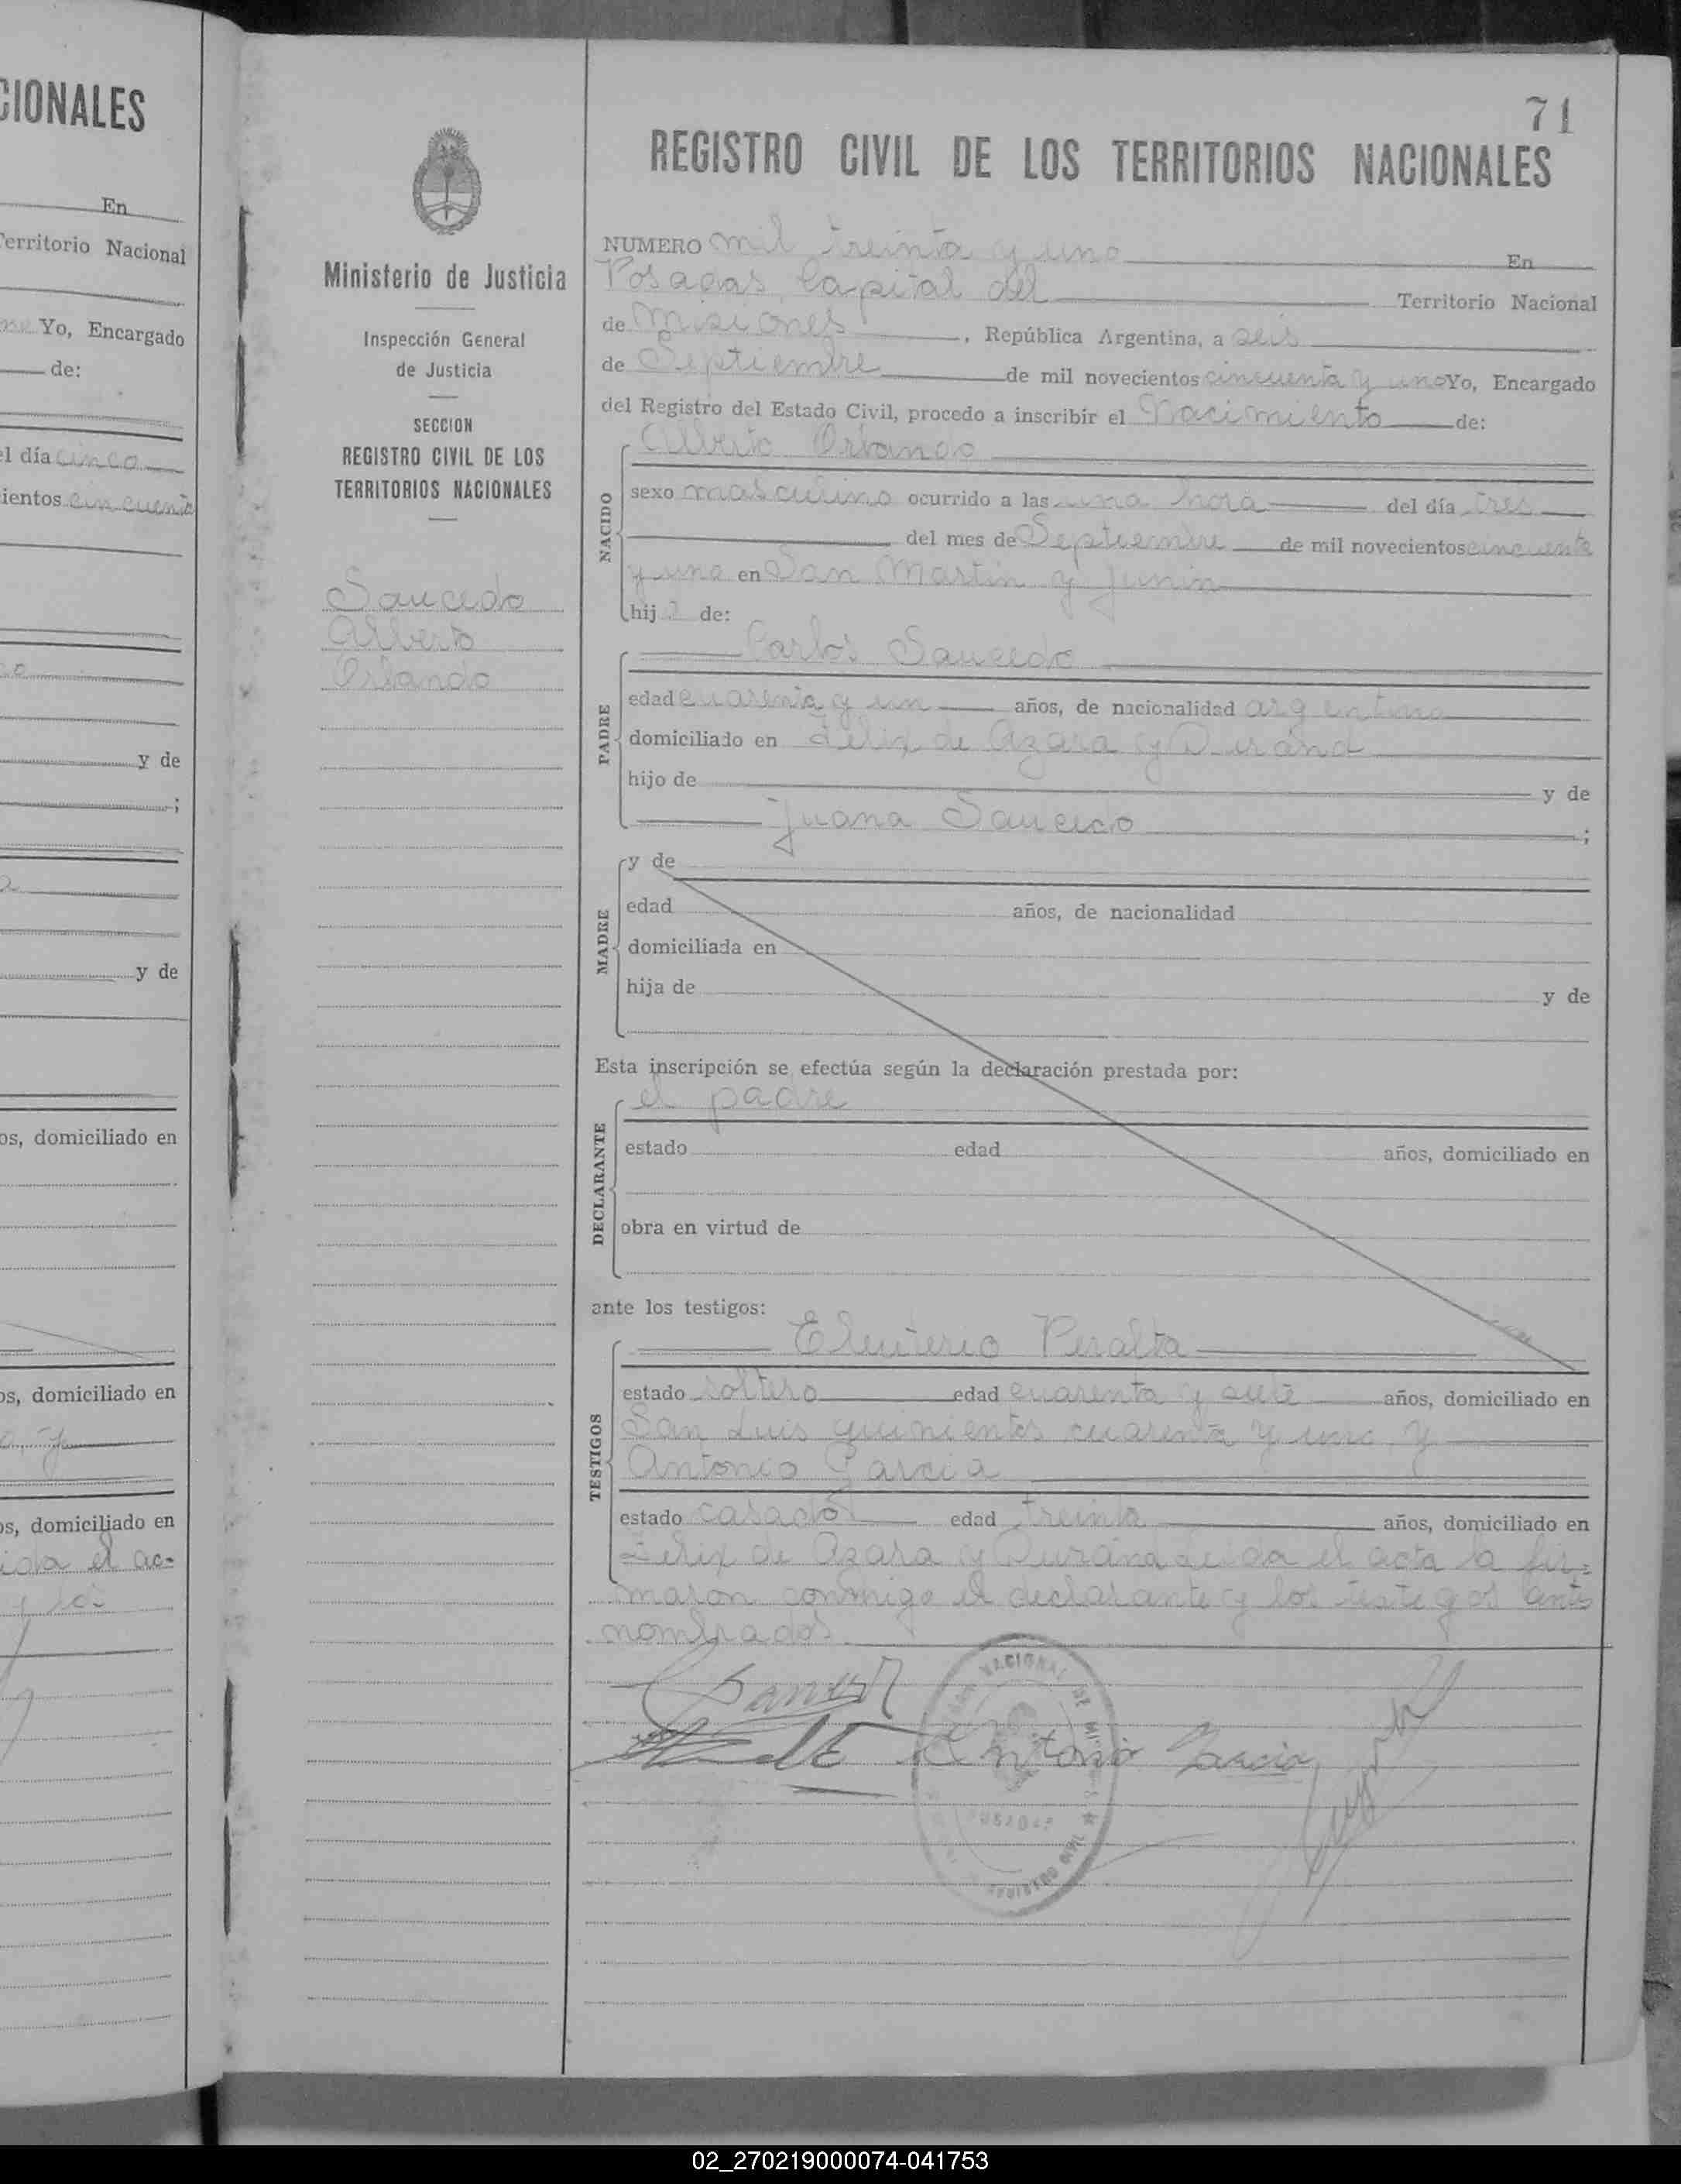 CIONALES
En
Territorio Nacional
Yo, Encargado
de:
el día cinco
cientos cincuenta
y de
;
y de
os, domiciliado en
os, domiciliado en
a, y
os, domiciliado en
ida el ac-
y los
Ministerio de Justicia
Inspección General
de Justicia
SECCION
REGISTRO CIVIL DE LOS
TERRITORIOS NACIONALES
Saucedo
Alberto
Orlando
71
REGISTRO CIVIL DE LOS TERRITORIOS NACIONALES
NUMERO mil treinta y uno En
Posadas Capital del Territorio Nacional
de Misiones, República Argentina, a seis
de Septiembre de mil novecientos cincuenta y uno Yo, Encargado
del Registro del Estado Civil, procedo a inscribir el Nacimiento de:
NACIDO
Alberto Orlando
sexo masculino ocurrido a las una hora del día tres
del mes de Septiembre de mil novecientos cincuenta
y uno en San Martin y Junin
hijo de:
PADRE
Carlos Saucedo
edad cuarenta y un años, de nacionalidad argentina
domiciliado en Felix de Azara y Durand
hijo de y de
Juana Saucedo ;
MADRE
y de
edad años, de nacionalidad
domiciliada en
hija de y de
Esta inscripción se efectúa según la declaración prestada por:
DECLARANTE
el padre
estado edad años, domiciliado en
obra en virtud de
ante los testigos:
TESTIGOS
Eleuterio Peralta
estado soltero edad cuarenta y siete años, domiciliado en
San Luis quinientos cuarenta y uno y
Antonio Garcia
estado casado edad treinta años, domiciliado en
Felix de Azara y Durand Leida el acta la fir-
maron conmigo el declarante y los testigos ante
nombrados.
Antonio Garcia
NACIONAL DE MI
REGISTRO CIVIL
02_270219000074-041753